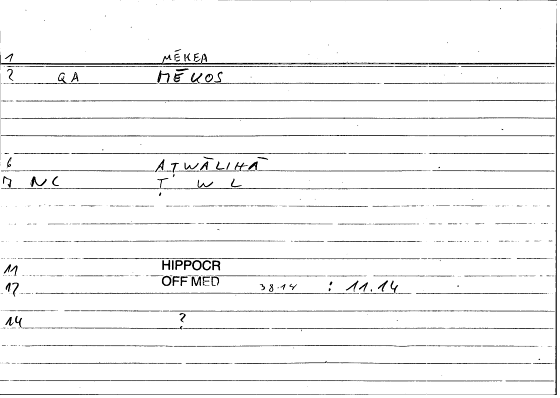 1 MĒKEA
2 QA MĒKOS
6 AṬWĀLIHĀ
7 NC Ṭ W L
11 HIPPOCR
12 OFF MED 38.14 : 11.14
14 ?